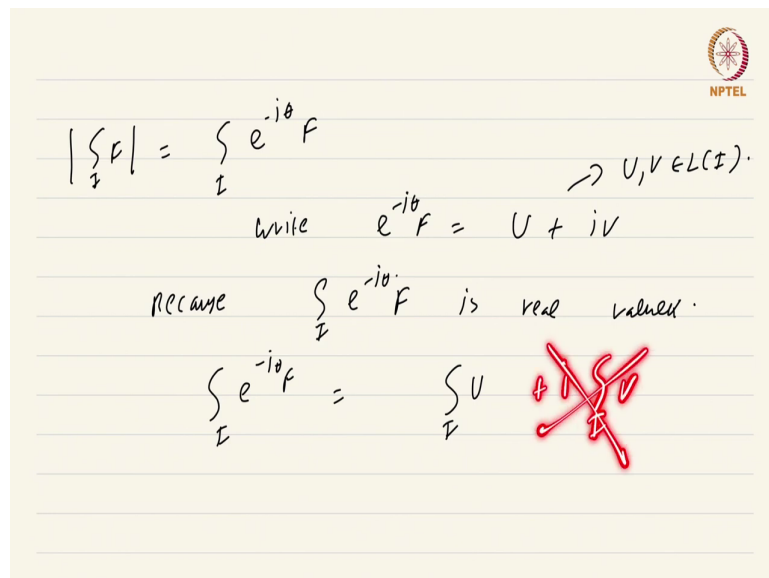 NPTEL
|∫_I F| = ∫_I e^{-iθ} F
→ U, V ∈ L(I).
write e^{-iθ} F = U + iV
Because ∫_I e^{-iθ} F is real valued.
∫_I e^{-iθ} F = ∫_I U + i ∫_I V